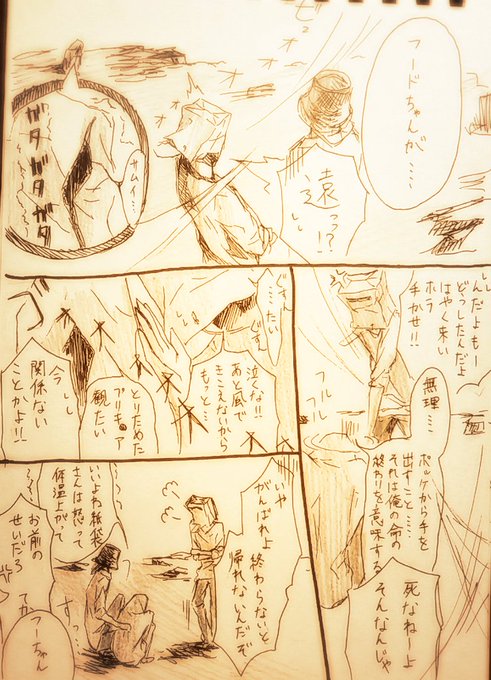 フードちゃんが……
ビュ
オ
オ
オ
遠っっ!?
サムイ…
ガタガタガタ
んだよもー
どぅしたんだよ
はやく来い
ホラ
手かせ!!
無理……
ポッケから手を
出すこと……
それは俺の命の
終わりを意味する
死なねーよ
そんなんじゃ
フル
フル
ぐすん
……たい
ぐすん
泣くな!!
あと風で
きこえないから
もっと…
とりためた
プリキュア
観たい
今
関係ない
ことかよ!!
いや
がんばれよ
終わらないと
帰れないんだぞ
いいよね紙袋
さんは怒って
体温上がって
お前の
せいだろ
てか
フーちゃん
すっ…